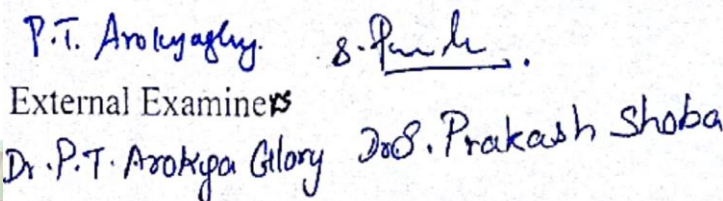 P.T. Arokyaglory. S.
External Examiners
Dr. P.T. Arokya Glory Dr. S. Prakash Shoba